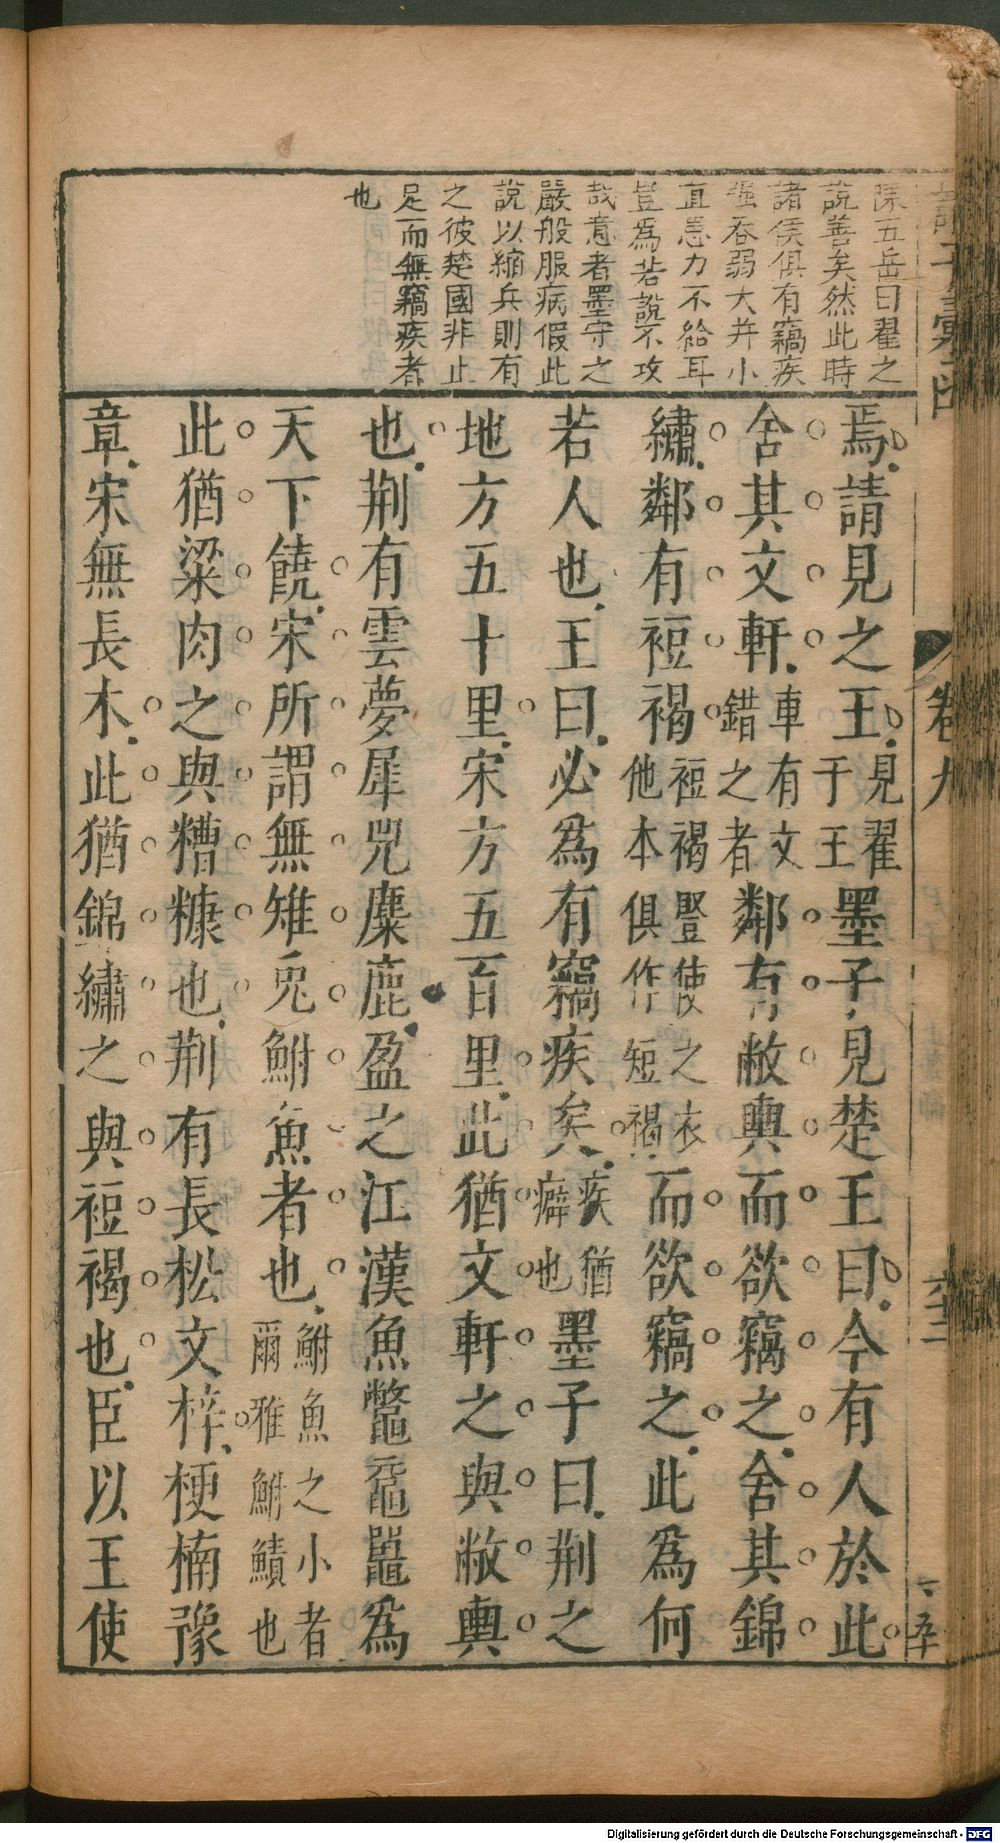 陳五岳曰翟之
說善矣然此時
諸侯俱有竊疾
強吞弱大并小
直患力不給耳
豈為若說不攻
哉意者墨守之
嚴般服病假此
說以縮兵則有
之彼楚國非止
足而無竊疾者
也
卷九
焉請見之王見翟于王墨子見楚王曰今有人於此
舍其文軒車有文錯之者鄰有敝輿而欲竊之舍其錦
繡鄰有裋褐裋褐豎使之衣他本俱作短褐而欲竊之此為何
若人也王曰必為有竊疾矣疾猶癖也墨子曰荊之
地方五十里宋方五百里此猶文軒之與敝輿
也荊有雲夢犀兕麋鹿盈之江漢魚鱉黿鼉為
天下饒宋所謂無雉兎鮒魚者也鮒魚之小者爾雅鮒鱝也
此猶粱肉之與糟糠也荊有長松文梓梗楠豫
章宋無長木此猶錦繡之與裋褐也臣以王使
Digitalisierung gefördert durch die Deutsche Forschungsgemeinschaft - DFG